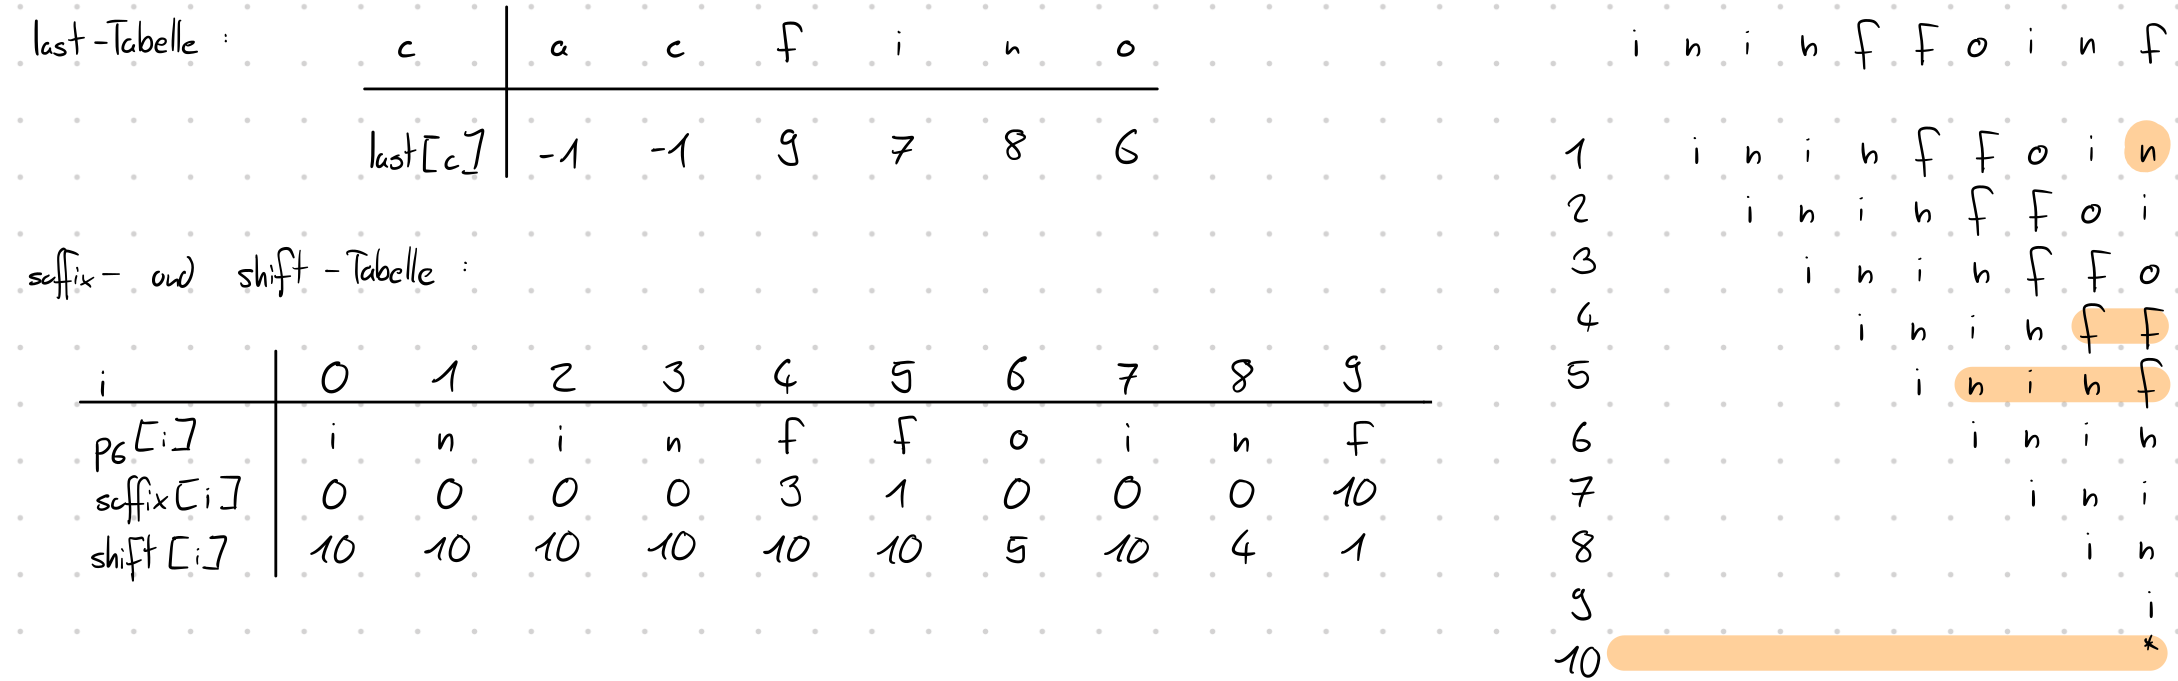 last-Tabelle :
c a c f i n o
last[c] -1 -1 9 7 8 6
suffix- und shift-Tabelle :
i 0 1 2 3 4 5 6 7 8 9
p6[i] i n i n f f o i n f
suffix[i] 0 0 0 0 3 1 0 0 0 10
shift[i] 10 10 10 10 10 10 5 10 4 1
i n i n f f o i n f
1 i n i n f f o i n
2 i n i n f f o i
3 i n i n f f o
4 i n i n f f
5 i n i n f
6 i n i n
7 i n i
8 i n
9 i
10 *